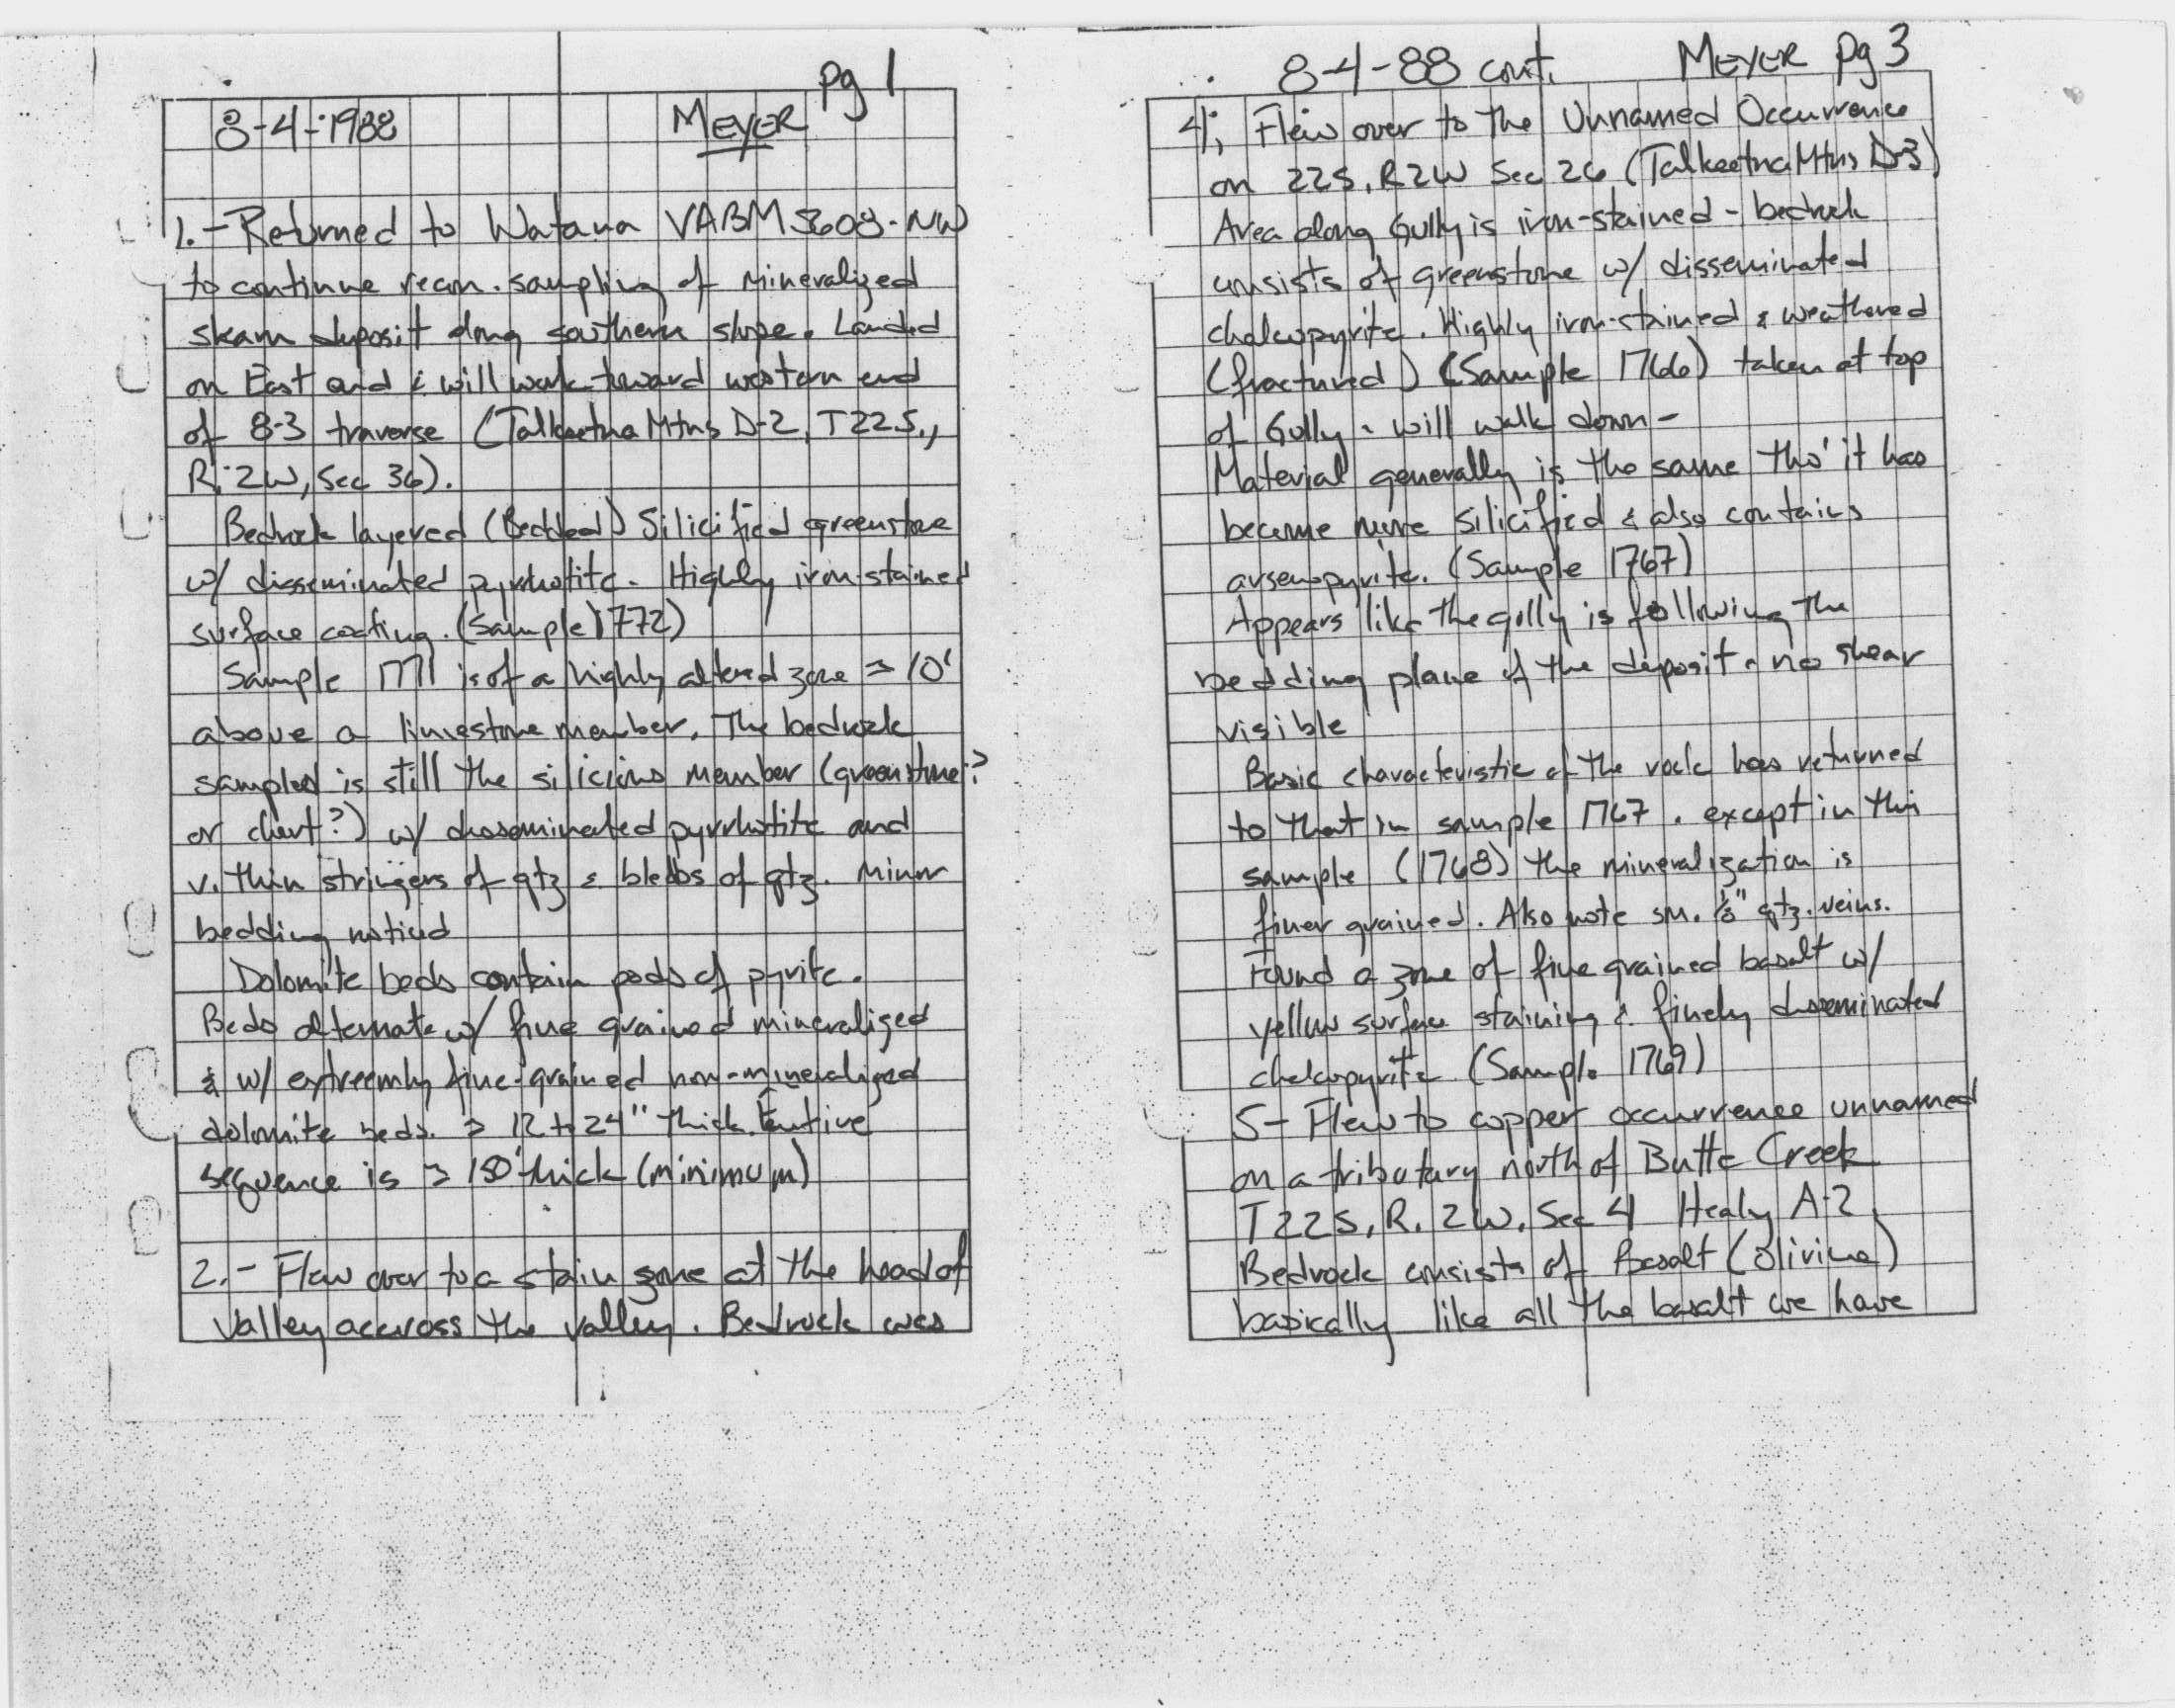 pg 1
8-4-1988 MEYER
1.- Returned to Watana VABM 3608-NW
to continue recon. sampling of mineralized
skarn deposit along southern slope. Landed
on East end & will work toward western end
of 8-3 traverse (Talkeetna Mtns D-2, T22S.,
R. 2W, Sec 36).
Bedrock layered (Bedded) Silicified greenstone
w/ disseminated pyrrhotite. Highly iron-stained
surface coating. (Sample 1772)
Sample 1771 is of a highly altered zone ≈ 10'
above a limestone member. The bedrock
sampled is still the silicious member (greenstone?
or chert?) w/ disseminated pyrrhotite and
v. thin stringers of qtz & blebbs of qtz. Minor
bedding noticed
Dolomite beds contain pods of pyrite.
Beds alternate w/ fine grained mineralized
& w/ extreemly fine-grained non-mineralized
dolomite beds. ≈ 12 to 24" thick. Entire
sequence is ≈ 150' thick (minimum)
2.- Flew over to a stain zone at the head of
valley accross the valley. Bedrock was
8-4-88 cont. MEYER pg 3
4; Flew over to the Unnamed Occurrence
on 22S, R2W Sec 26 (Talkeetna Mtns D-3)
Area along Gully is iron-stained - bedrock
consists of greenstone w/ disseminated
chalcopyrite. Highly iron-stained & weathered
(fractured) (Sample 1766) taken at top
of Gully - will walk down -
Material generally is the same tho' it has
become more silicified & also contains
arsenopyrite. (Sample 1767)
Appears like the gully is following the
bedding plane of the deposit - no shear
visible
Basic characteristic of the rock has returned
to that in sample 1767 . except in this
sample (1768) the mineralization is
finer grained. Also note sm. 1/8" qtz. veins.
Found a zone of fine grained basalt w/
yellow surface staining & finely disseminated
chalcopyrite (Sample 1769)
5- Flew to copper occurrence unnamed
on a tributary north of Butte Creek
T22S, R. 2W, Sec 4 Healy A-2
Bedrock consists of Basalt (olivine)
basically like all the basalt we have